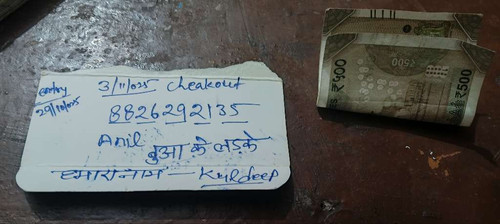 entry
29/10/025
3/11/025 Cheakout
8826292135
Anil बुआ के लड़के
हमारा नाम — Kuldeep
₹500
₹500
500